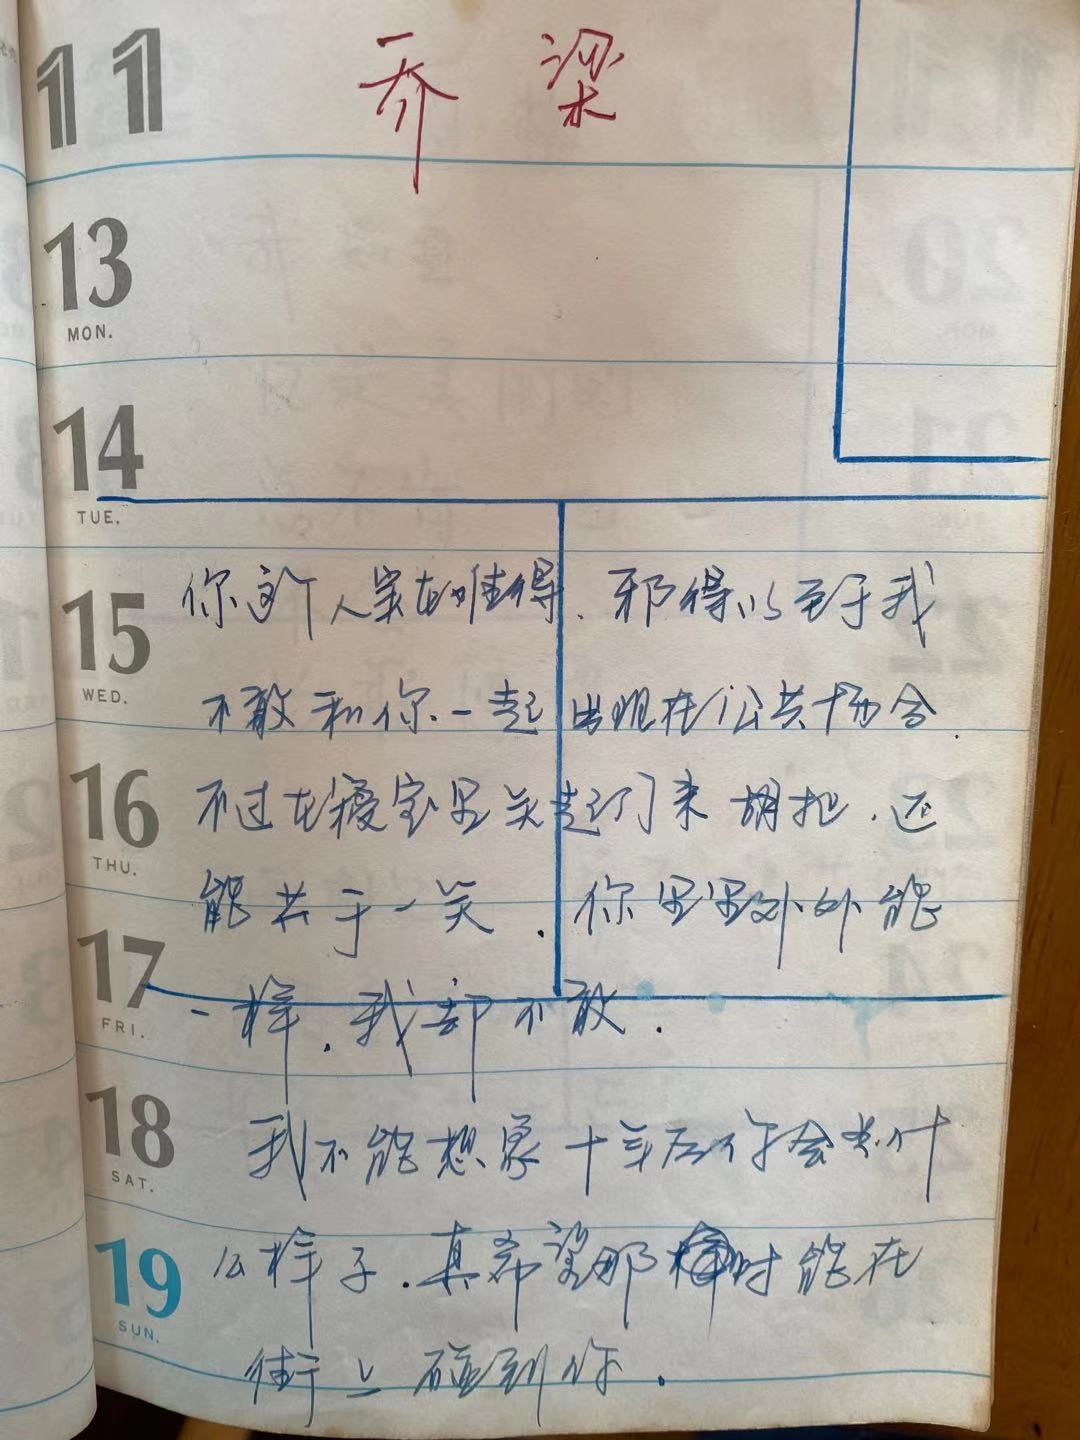 11
乔 梁
13
MON.
14
TUE.
15
WED.
你这个人实在难得、邪得以至于我
不敢和你一起出现在公共场合.
16
THU.
不过在寝室里关起门来胡扯、还
能共于一笑. 你里里外外能
17
FRI.
一样. 我都不敢.
18
SAT.
我不能想象十年后你会是什
19
SUN.
么样子. 真希望那时能在
街上碰到你.